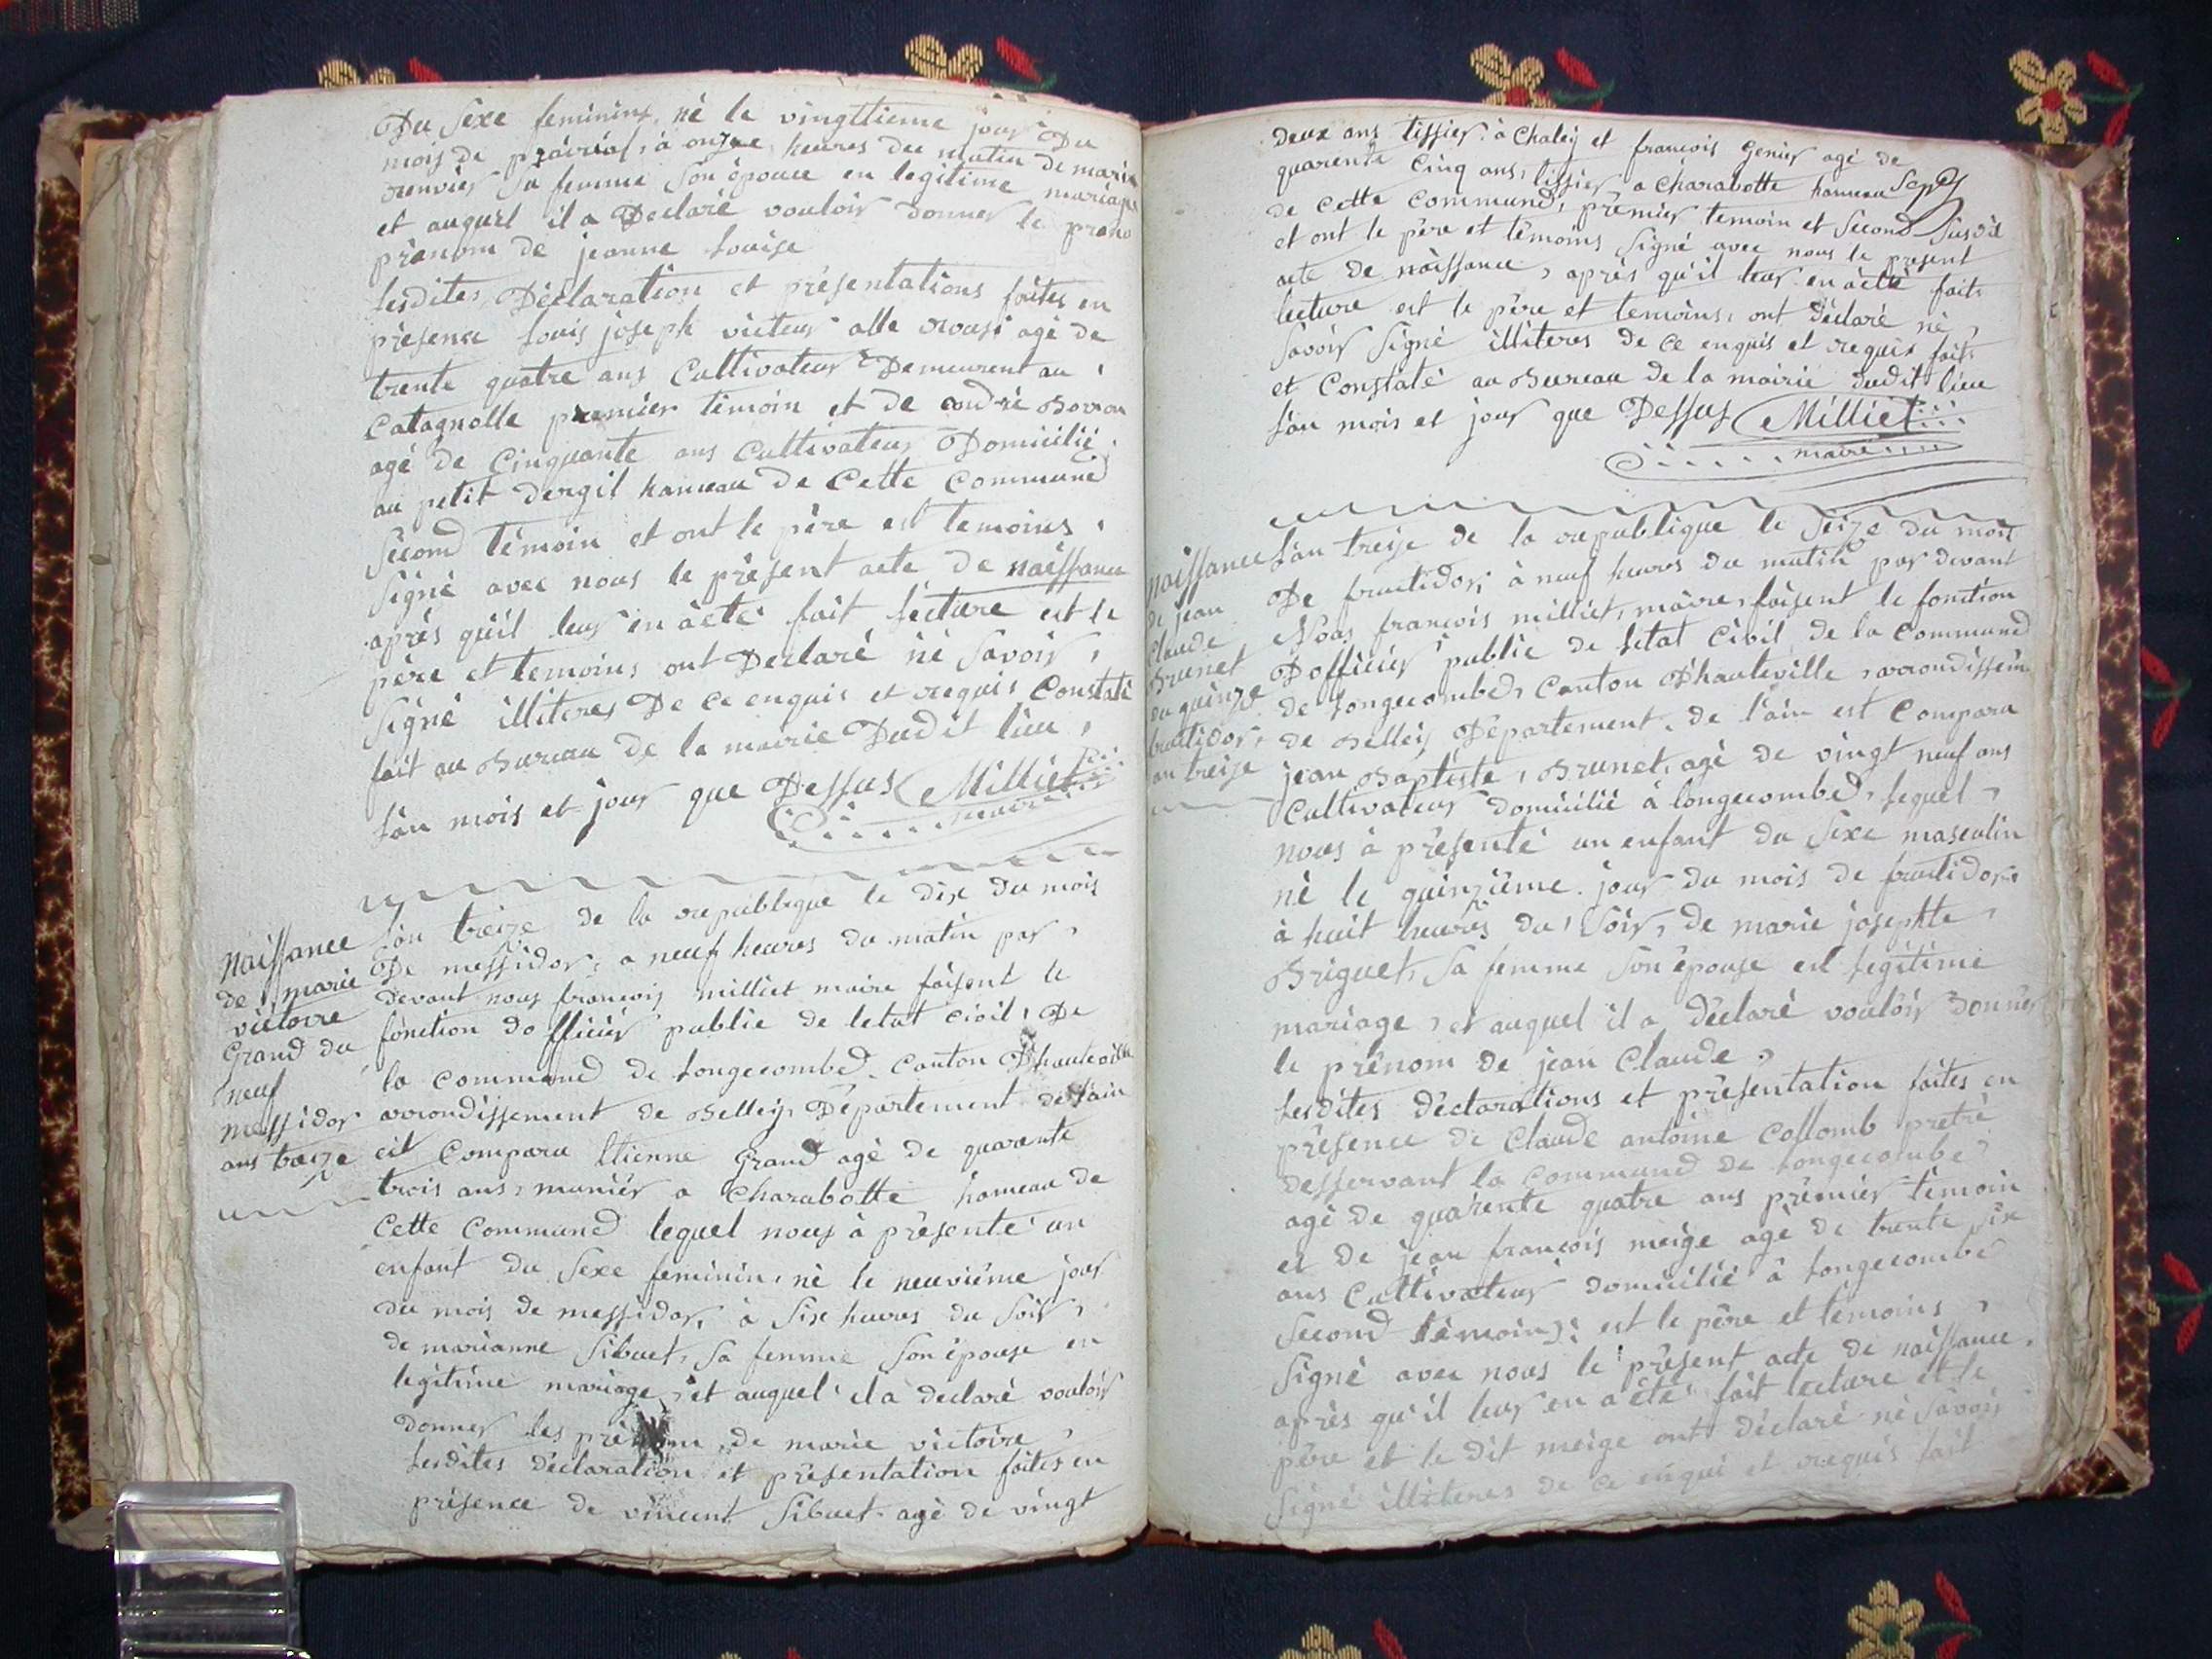 Du Sexe feminins né le vingttieme jour Du
mois de prairial, à onze heures du matin de marie
Sa femme Son épouce en legitime mariage
et auquel il a Declaré vouloir donner le
prénom de jeanne Louise
Lesdites Déclaration et présentations faites en
présence Louis joseph victeur alle agé de
trente quatre ans Cultivateur Demeurent au
Catagnolle premier témoin et de andré
agé de Cinquante ans Cultivateur Domicilié
au petit dergil hameau de Cette Commune
Second témoin et ont le père est temoins
Signé avec nous le présent acte de naissance
après qu'il leur en àeté fait lecture est le
père et temoins ont Declaré né Savoir
Signé illiteres De ce enquis et requis Constaté
fait au Bureau de la mairie Dudit lieu
L'an mois et jour que Dessus Milliet
maire
Naissance
de marie
victoire
Grand du
neuf
messidor
ans treize
L'an treize de la republique le dix du mois
De messidor, a neuf heures du matin par
devant nous francois milliet maire faisent le
fonction do fficier public de letat civil, De
la Commune de Longecombe Canton Dhauteville
arrondissement de Belley Département de L'ain
est Comparu Etienne Grand agé de quarante
trois ans, munier a Charabotte hameau de
Cette Commune lequel nous à présenté un
enfant du Sexe feminin, né le neuviéme jour
du mois de messidor, à Six heures du Soir,
de marianne Sibuet, Sa femme Son épouse en
legitime mariage, et auquel il a declaré vouloir
donner les de marie victoire,
Lesdites déclaration et présentation faites en
présence de vincent Sibuet agé de vingt
deux ans tissier à Chaley et francois Genier agé de
quarente Cinq ans, tissier a Charabotte hameau
de cette Commune, premier temoin et Second Susdit
et ont le père et témoins Signé avec nous le present
acte de naissance, après qu'il leur en àeté fait
lecture est le père et temoins, ont déclaré né,
Savoir Signé illiteres de ce enquis et requis fait
et Constaté au Bureau de la mairie dudit lieu
L'an mois et jour que Dessus Milliet
maire
Naissance
de jean
Claude
Brunet
du quinze
fructidor,
an treize
L'an treize de la republique le Seize du mois
De fructidor, à neuf heures du matin par devant
Nous francois milliet, maire, faisent le fonction
Dofficier public de letat Civil de la Commune
de Longecombe, Canton D'hauteville, arrondissem
de Belley Département de l'ain est Comparu
jean Baptiste, Brunet, agé de vingt neuf ans
Cultivateur domicilié à longecombe, lequel,
nous à présenté un enfant du Sexe masculin
né le quinziéme jour du mois de fructidor,
à huit heures du Soir, de marie josephte,
Briguet, Sa femme Son épouse est legitime
mariage, et auquel il a déclaré vouloir donner
le prénom de jean Claude,
Lesdites déclarations et présentation faites en
présence de Claude antoine Collomb pretré
desservant la Commune de Longecombe,
agé de quarente quatre ans prémier témoin
et de jean francois meige agé de trente six
ans Cultivateur domicilié à Longecombe
Second témoin, est le père et témoins,
Signé avec nous le présent acte de naissance,
après qu'il leur en a été fait lecture et le
père et le dit meige ont déclaré né Savoir
Signé illiteres de ce enqui et requis fait